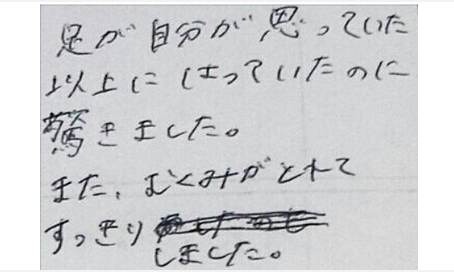 足が自分が思っていた
以上にはっていたのに
驚きました。
また、むくみがとれて
すっきり
しました。